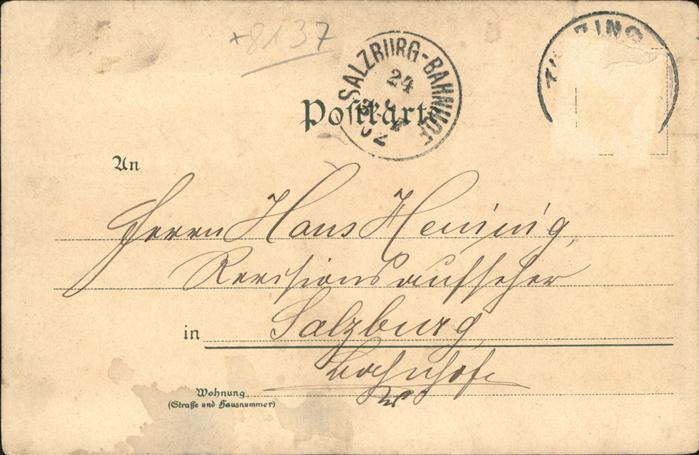 +8137
SALZBURG-BAHNHOF
24
02
ZING
Postkarte
An
Herrn Hans Hennig,
Revisionsaufseher
in Salzburg,
Bahnhof
Wohnung
(Straße und Hausnummer)